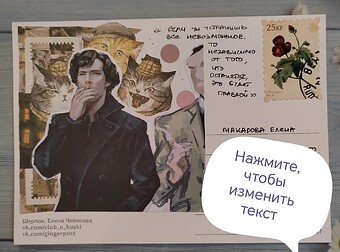 « ЕСЛИ ТЫ УСТРАНИШЬ
ВСЕ НЕВОЗМОЖНОЕ, ТО
НЕЗАВИСИМО
ОТ ТОГО,
ЧТО
ОСТАНЕТСЯ,
ЭТО БУДЕТ
ПРАВДОЙ»
25 К
МАКАРОВА ЕЛЕНА
Нажмите,
чтобы
изменить
текст
Шерлок. Елена Чивикова
vk.com/club_u_kuzki
vk.com/gingerpost